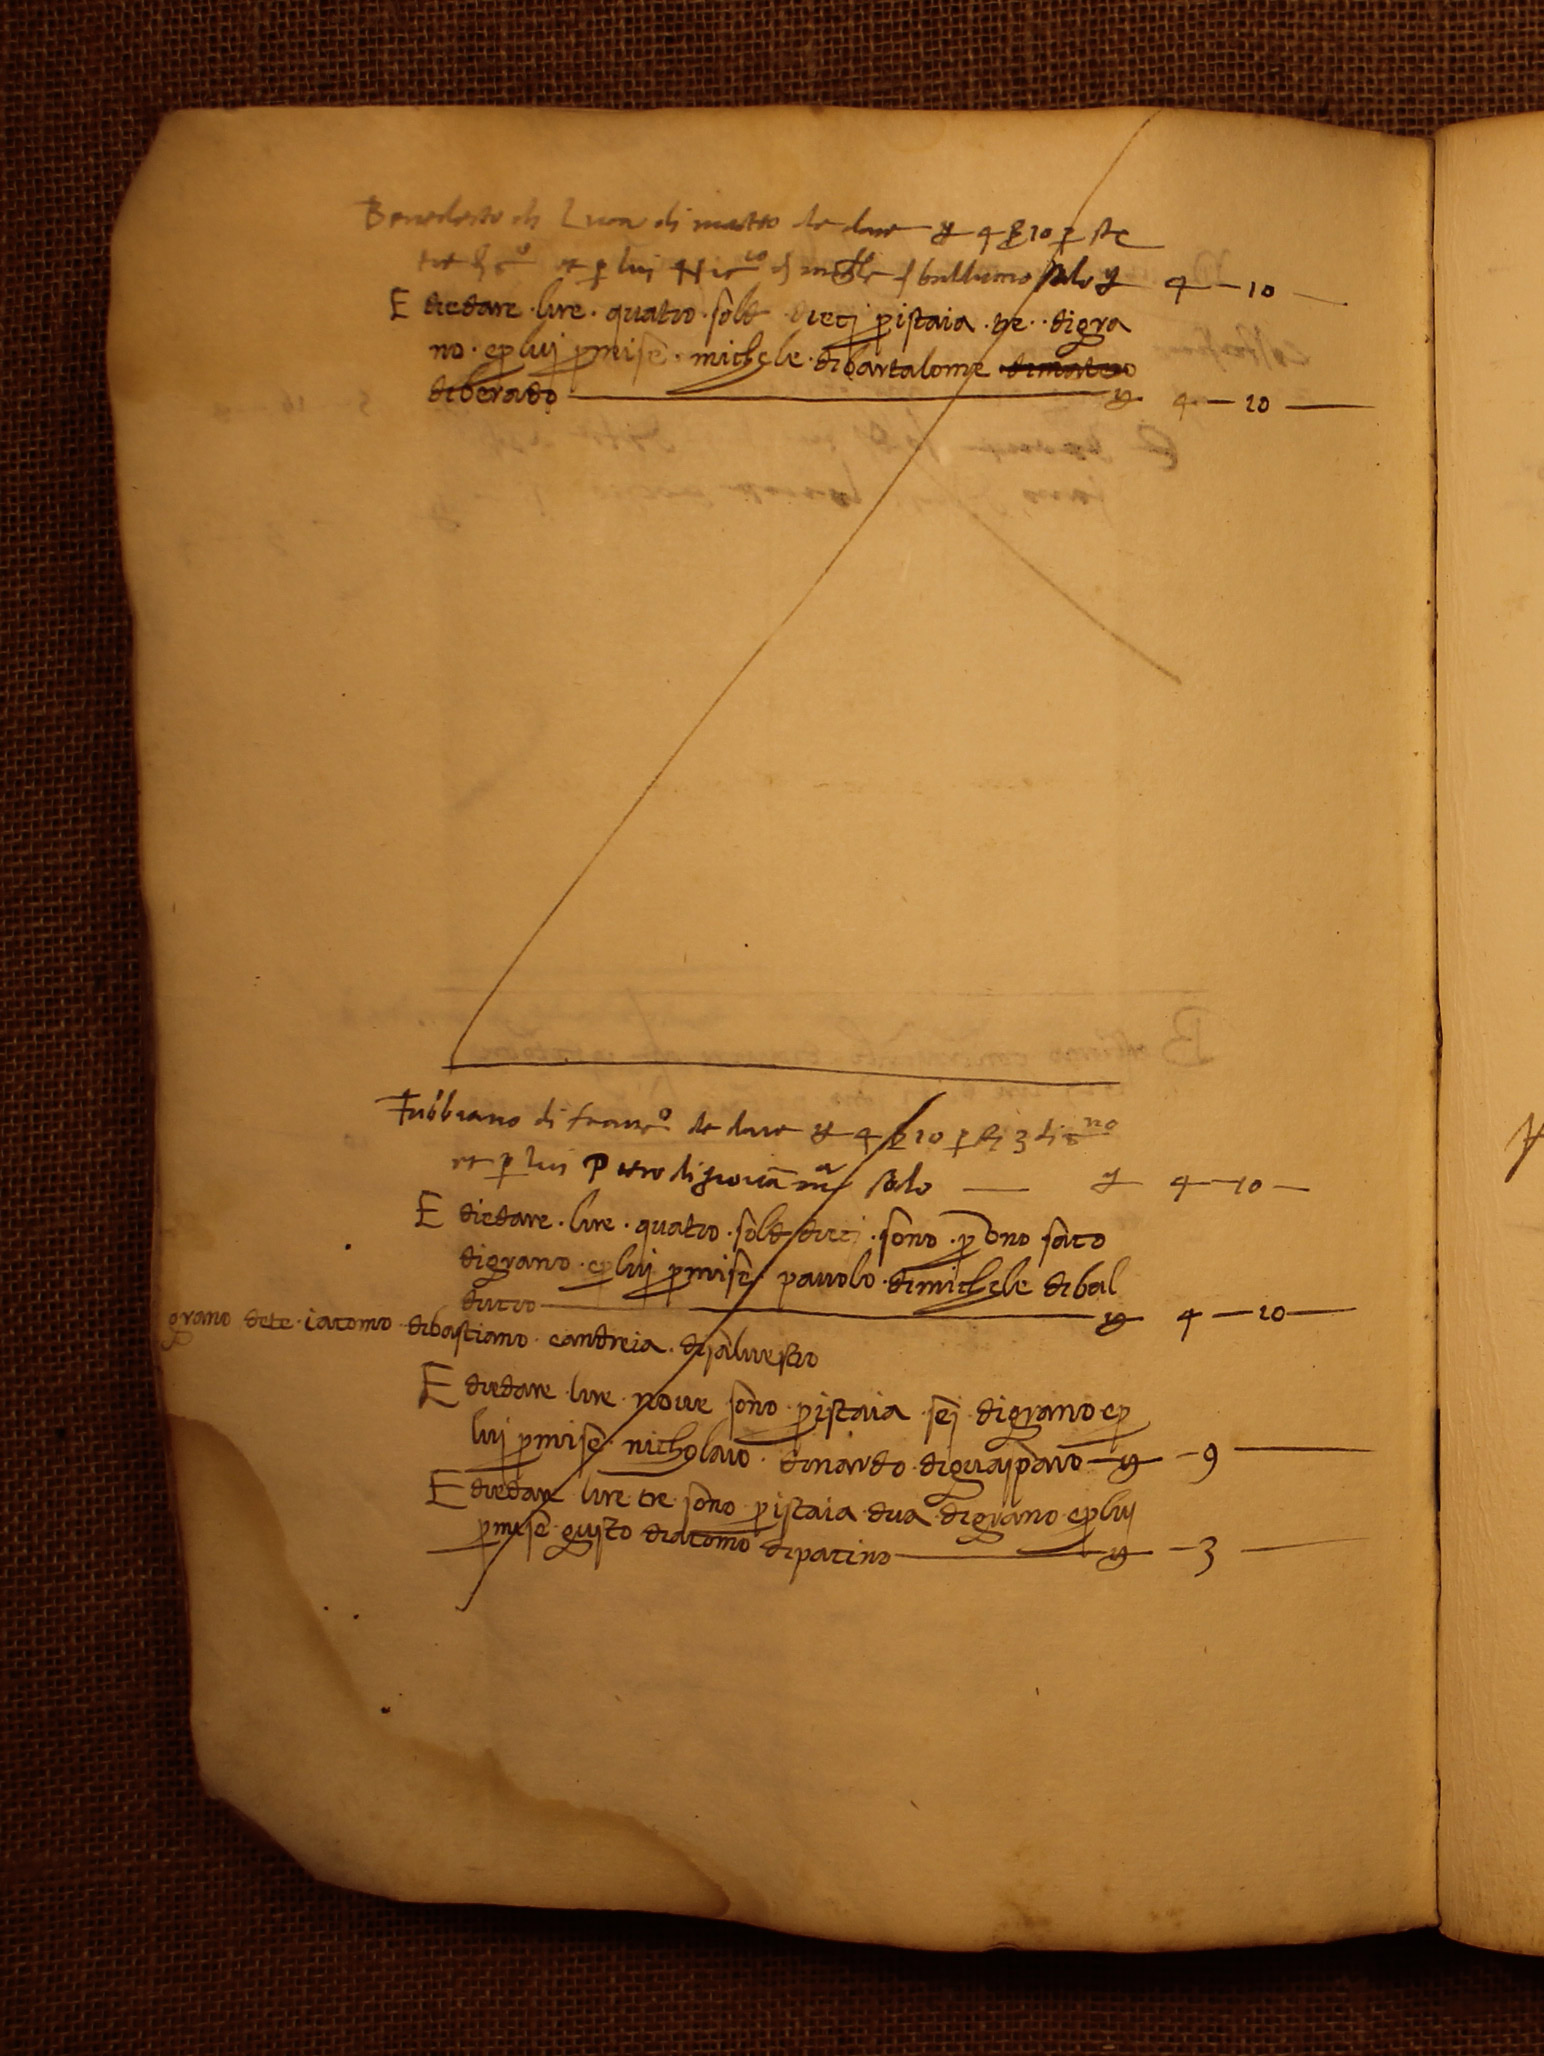 Benedetto di Luca di matteo de dare £ 4 ß 10 p st
tre et p lui di bullumo £ 4 — 10 —
E diedare · lire · quatro · sold dieci p istaia · tre · digra
no · e p lui p mise · michele · dibartalome dimateo
diberado £ 4 — 10 —
Fabbiano di franc.º de dare £ 4 ß 10 p st 3 di g.no
et p lui Piero di giovā £ 4 — 10 —
E diedare · lire · quatro · sold dieci · sono · p ono saco
digrano · e p lui p mise · pauolo · dimichele dibal
ducio £ 4 — 10 —
grano dete · iacomo · dibastiano · eandreia · disaluestro
E diedare · lire · noue sono · p istaia · sei · digrano e p
lui p mise · nicholaio · dinardo · diguasparo £ — 9 —
E diedare lire tre · sono · p istaia · dua · digrano · e p lui
p mise · giusto diacomo dipacino £ — 3 —